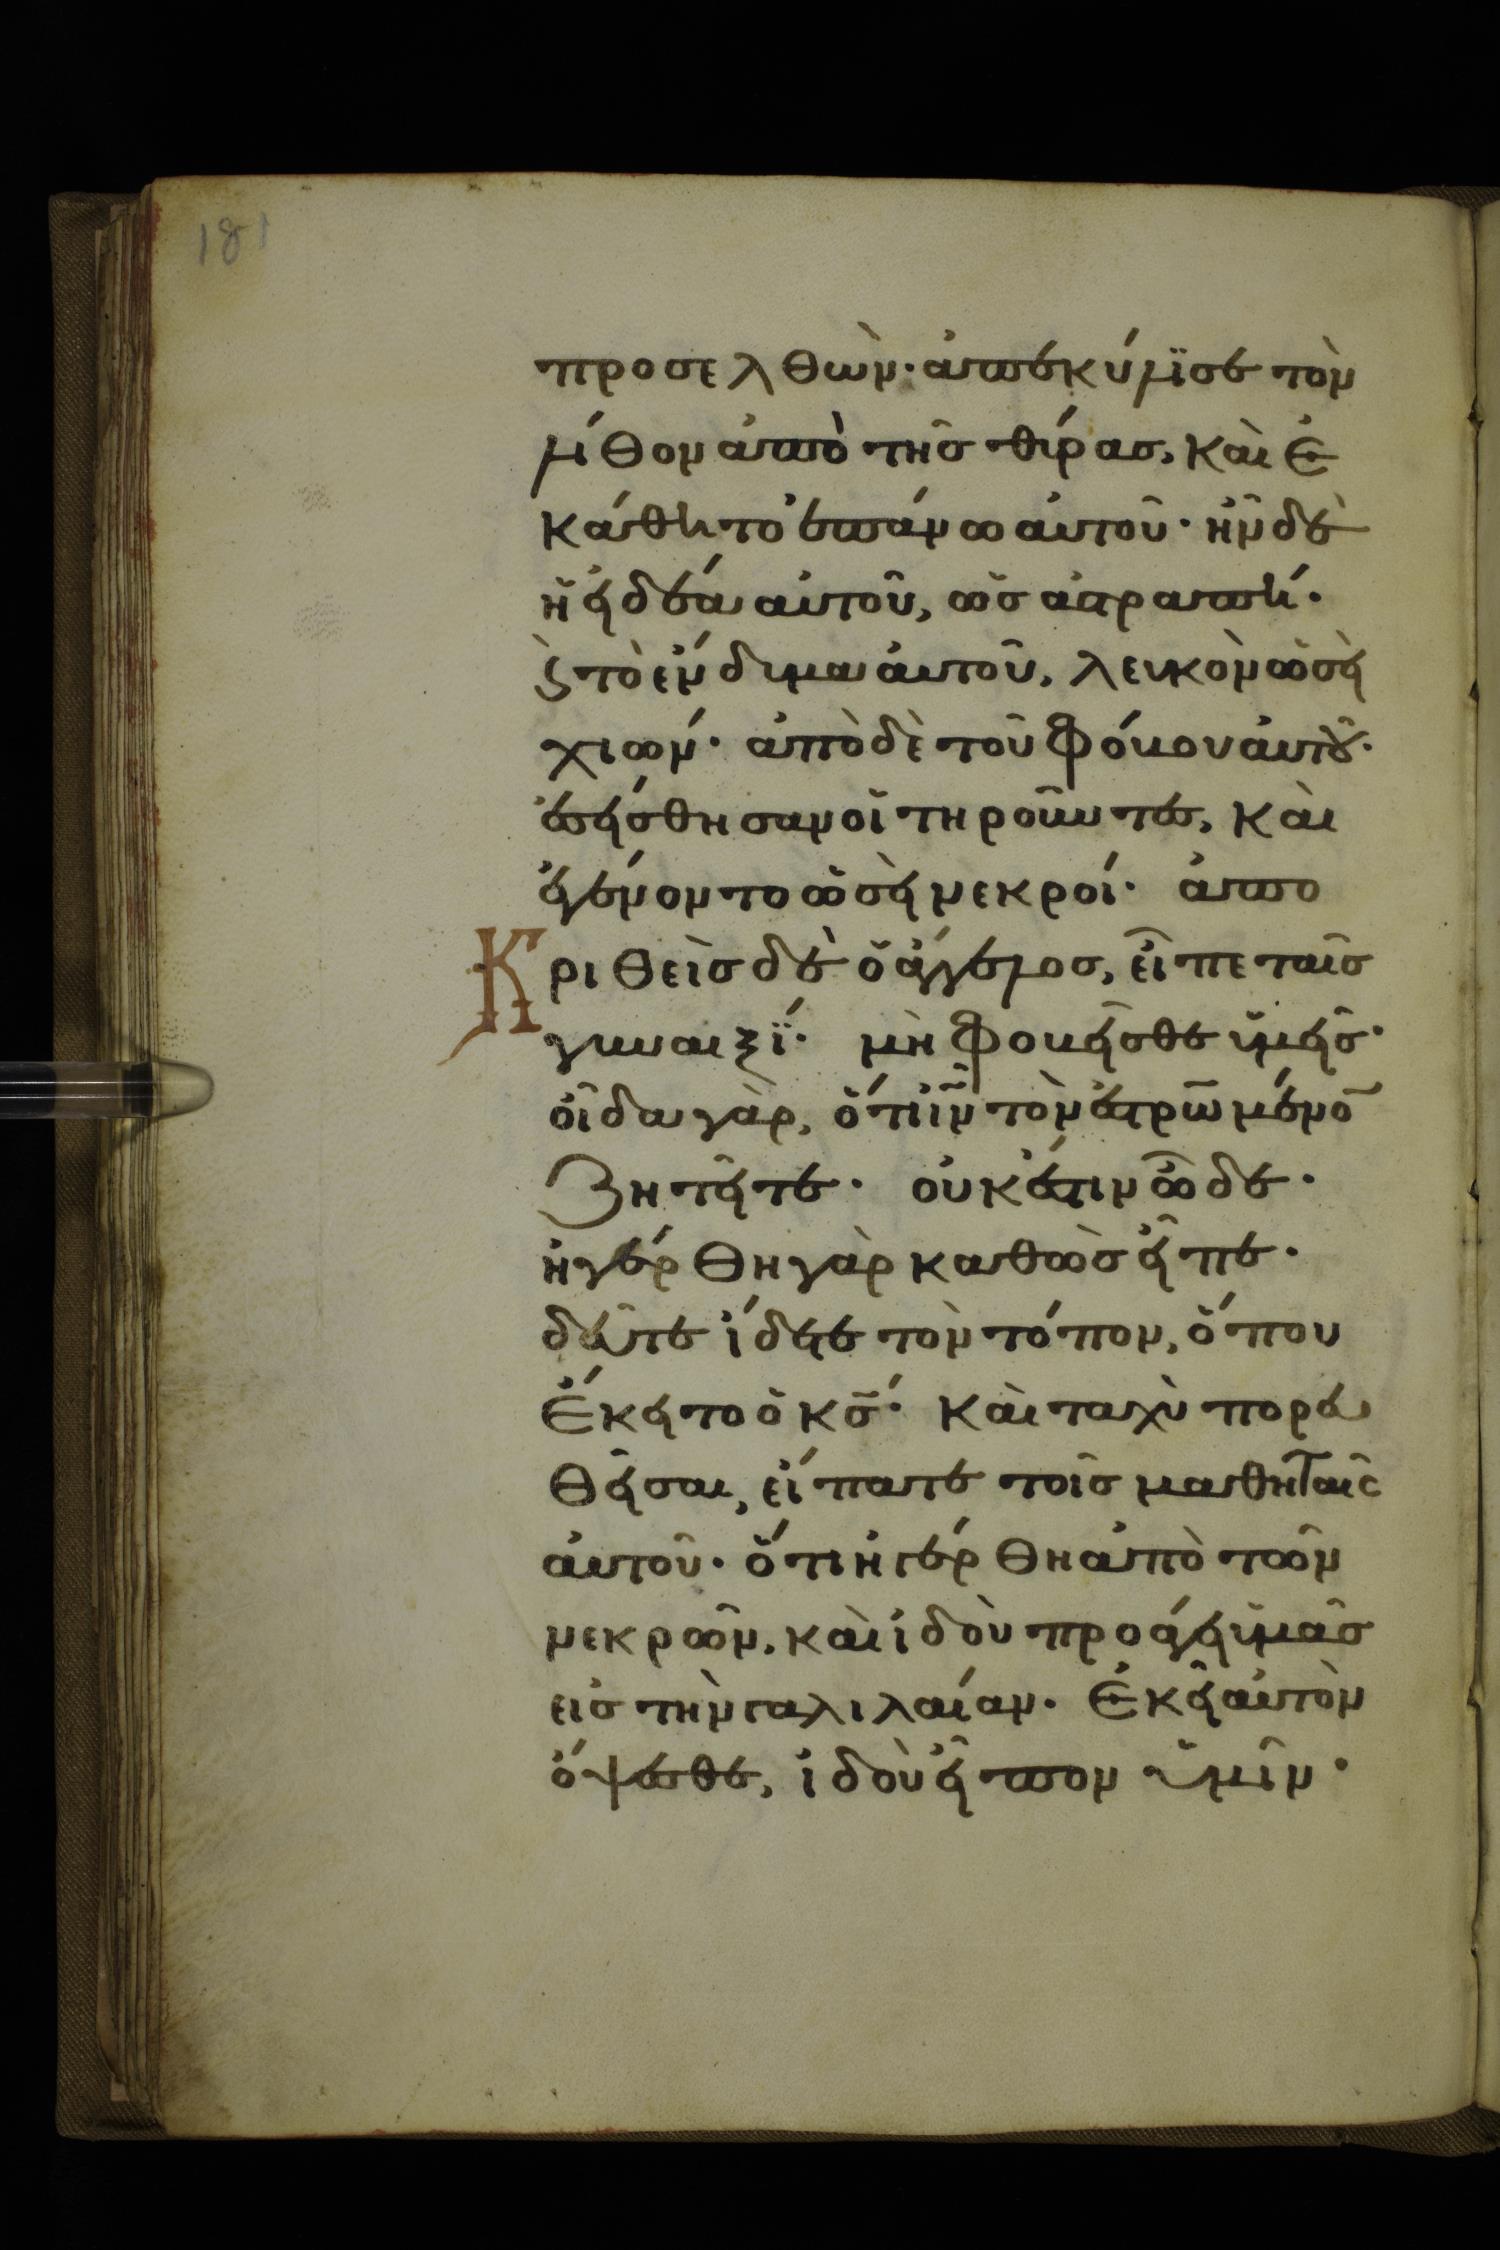 181
προσελθὼν· ἀπεκύλϊσε τὸν
λίθον ἀπὸ τῆς θύρας, καὶ ἐ
κάθητο ἐπάνω αὐτοῦ· ἦν δὲ
ἡ ἰδέα αὐτοῦ, ὡς ἀστραπή·
ϗ τὸ ἔνδυμα αὐτοῦ, λευκὸν ὡσεὶ
χιών· ἀπὸ δὲ τοῦ φόβου αὐτοῦ·
ἐσείσθησαν οἱ τηροῦντες, καὶ
ἐγένοντο ὡσεὶ νεκροί· ἀπο
Κριθεὶς δὲ ὁ ἄγγελος, εἶπε ταῖς
γυναιξί· μὴ φοβεῖσθε ὑμεῖς·
οἶδα γὰρ, ὅτι ἰ̅ν̅ τὸν ἐσταυρωμένον
ζητεῖτε· οὐκ ἔστιν ὧδε·
ἠγέρθη γὰρ καθὼς εἶπε·
δεῦτε ἴδετε τὸν τόπον, ὅπου
ἔκειτο ὁ κ̅ς̅· καὶ ταχὺ πορευ
θεῖσαι, εἴπατε τοῖς μαθηταῖς
αὐτοῦ· ὅτι ἠγέρθη ἀπὸ τῶν
νεκρῶν, καὶ ἰδοὺ προάγει ὑμᾶς
εἰς τὴν γαλιλαίαν· ἐκεῖ αὐτὸν
ὄψεσθε, ἰδοὺ εἶπον ὑμῖν·